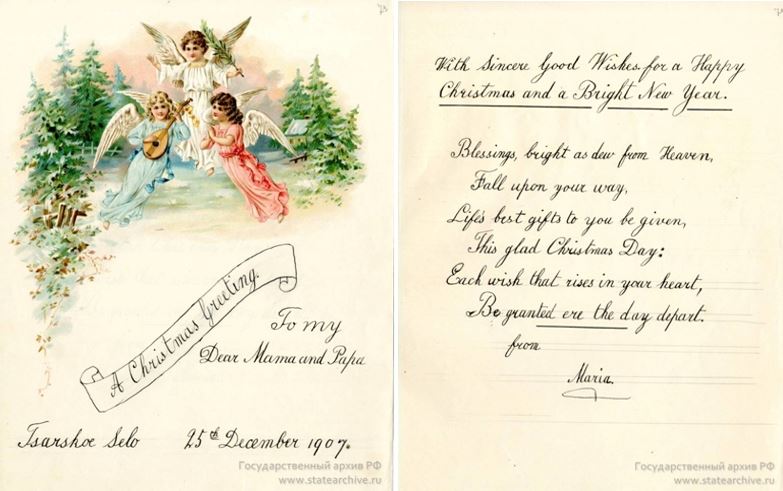 73
A Christmas Greeting.
To my
Dear Mama and Papa
Tsarskoe Selo 25th December 1907.
Государственный архив РФ
www.statearchive.ru
With Sincere Good Wishes for a Happy
Christmas and a Bright New Year.
Blessings, bright as dew from Heaven,
Fall upon your way,
Life's best gifts to you be given,
This glad Christmas Day:
Each wish that rises in your heart,
Be granted ere the day depart.
from
Maria.
Государственный архив РФ
www.statearchive.ru